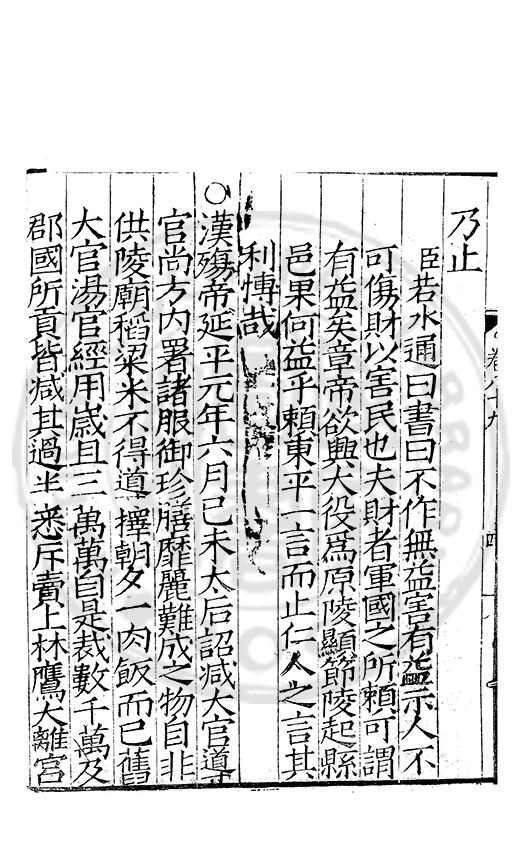 乃止
臣若水通曰書曰不作無益害有益示人不
可傷財以害民也夫財者軍國之所賴可謂
有益矣章帝欲興大役為原陵顯節陵起縣
邑果何益乎賴東平一言而止仁人之言其
利慱哉
○漢殤帝延平元年六月己未太后詔减大官導
官尚方内署諸服御珍膳靡麗難成之物自非
供陵廟稻粱米不得導擇朝夕一肉飯而已舊
大官湯官經用歲且二萬萬自是裁數千萬及
郡國所貢皆减其過半悉斥賣上林鷹犬離宮
卷八十九